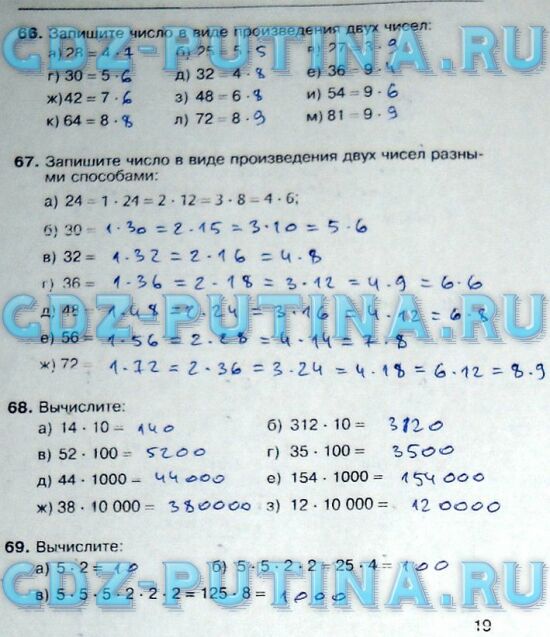 66. Запишите число в виде произведения двух чисел:
а) 28 = 4 · 7 б) 25 = 5 · 5 в) 27 = 3 · 9
GDZ-PUTINA.RU
г) 30 = 5 · 6 д) 32 = 4 · 8 е) 36 = 9 · 4
ж) 42 = 7 · 6 з) 48 = 6 · 8 и) 54 = 9 · 6
к) 64 = 8 · 8 л) 72 = 8 · 9 м) 81 = 9 · 9
67. Запишите число в виде произведения двух чисел разны-
ми способами:
а) 24 = 1 · 24 = 2 · 12 = 3 · 8 = 4 · 6;
б) 30 = 1 · 30 = 2 · 15 = 3 · 10 = 5 · 6
в) 32 = 1 · 32 = 2 · 16 = 4 · 8
г) 36 = 1 · 36 = 2 · 18 = 3 · 12 = 4 · 9 = 6 · 6
GDZ-PUTINA.RU
д) 48 = 1 · 48 = 2 · 24 = 3 · 16 = 4 · 12 = 6 · 8
е) 56 = 1 · 56 = 2 · 28 = 4 · 14 = 7 · 8
ж) 72 = 1 · 72 = 2 · 36 = 3 · 24 = 4 · 18 = 6 · 12 = 8 · 9
68. Вычислите:
а) 14 · 10 = 140 б) 312 · 10 = 3120
в) 52 · 100 = 5200 г) 35 · 100 = 3500
д) 44 · 1000 = 44000 е) 154 · 1000 = 154000
ж) 38 · 10 000 = 380000 з) 12 · 10 000 = 120000
69. Вычислите:
а) 5 · 2 = 10 б) 5 · 5 · 2 · 2 = 25 · 4 = 100
GDZ-PUTINA.RU
в) 5 · 5 · 5 · 2 · 2 · 2 = 125 · 8 = 1000
19